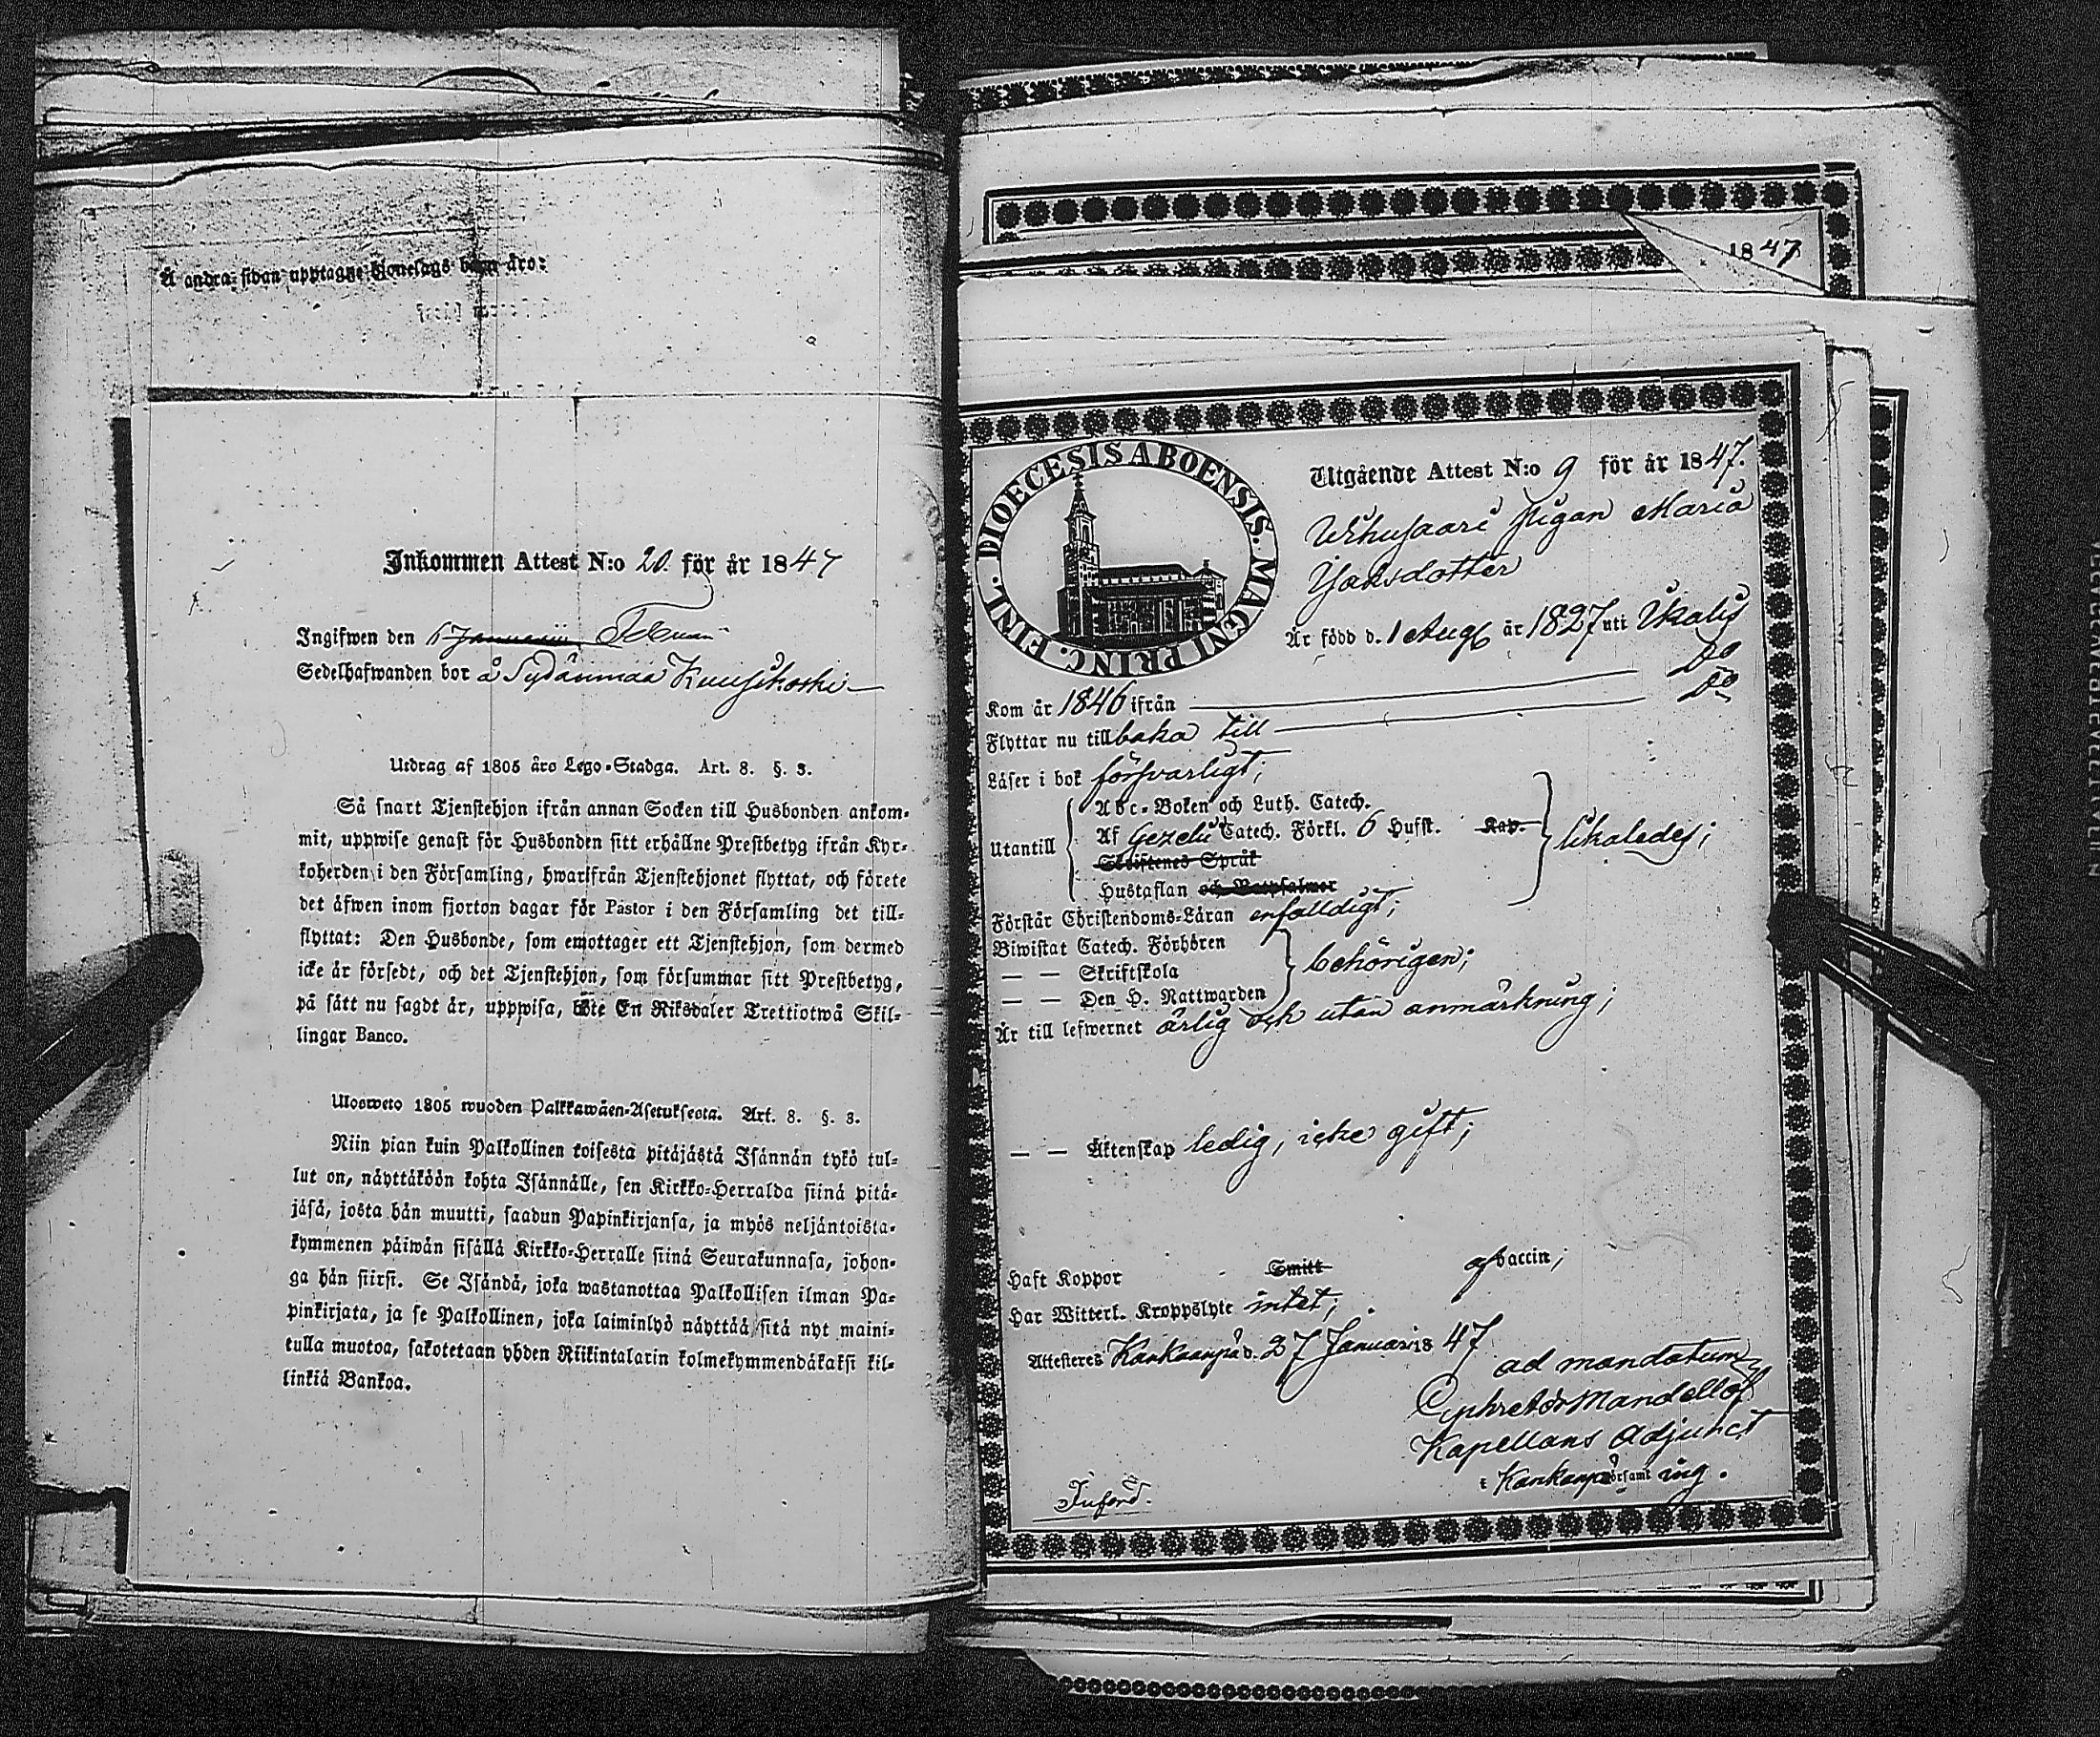 Å andra sidan upptagne Hionelags barn äro:
Inkommen Attest N:o 20. för år 1847
Ingifwen den 6 Januarii Februari
Sedelhafwanden bor å Sydänmaa Kuusikoski
Utdrag af 1805 års Lego-Stadga. Art. 8. §. 3.
Så snart Tjenstehjon ifrån annan Socken till Husbonden ankom-
mit, uppwise genast för Husbonden sitt erhållne Prestbetyg ifrån Kyr-
koherden i den Församling, hwarifrån Tjenstehjonet flyttat, och förete
det äfwen inom fjorton dagar för Pastor i den Församling det till-
flyttat: Den Husbonde, som emottager ett Tjenstehjon, som dermed
icke är försedt, och det Tjenstehjon, som försummar sitt Prestbetyg,
på sätt nu sagdt är, uppwisa, böte En Riksdaler Trettiotwå Skil-
lingar Banco.
Ulosweto 1805 wuoden Palkkawäen-Asetuksesta. Art. 8. §. 3.
Niin pian kuin Palkollinen toisesta pitäjästä Isännän tykö tul-
lut on, näyttäköön kohta Isännälle, sen Kirkko-Herralda siinä pitä-
jäsä, josta hän muutti, saadun Papinkirjansa, ja myös neljäntoista-
kymmenen päiwän sisällä Kirkko-Herralle siinä Seurakunnasa, johon-
ga hän siirsi. Se Isändä, joka wastanottaa Palkollisen ilman Pa-
pinkirjata, ja se Palkollinen, joka laiminlyö näyttää sitä nyt maini-
tulla muotoa, sakotetaan yhden Riikintalarin kolmekymmendäkaksi kil-
linkiä Bankoa.
1847
DIOECESIS ABOENSIS. MAGNI PRINC. FINL.
Utgående Attest N:o 9 för år 1847.
Uhusaari Pigan Maria
Jaksdotter
Är född d. 1 Aug år 1827 uti Ikalis
Kom år 1846 ifrån Do
Flyttar nu tillbaka till Do
Läser i bok försvarligt;
Utantill
Abc-Boken och Luth. Catech.
Af Gezelii Catech. Förkl. 6 Hufst. Kap.
Skriftenes Språk
Hustaflan och Botpsalmer
likaledes;
Förstår Christendoms-Läran enfalldigt;
Biwistat Catech. Förhören
— — Skriftskola
— — Den H. Nattwarden
behörigen;
Är till lefwernet ärlig och utan anmärkning;
— — Äktenskap ledig, icke gift;
Haft Koppor Smitt af Vaccin;
Har Witterl. Kroppslyte intet;
Attesteras Kankaanpää d. 27 Januari 1847
ad mandatum
Mandellöf
Kapellans Adjunct
i Kankanpä Församling.
Införd.